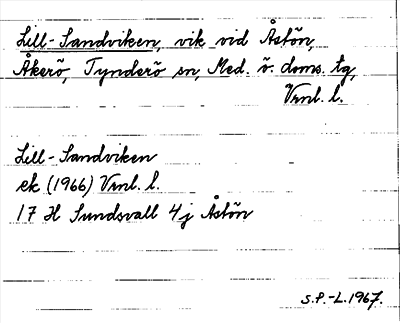 Lill-Sandviken, vik vid Åstön,
Åkerö, Tynderö sn, Med. ö. doms. tg,
Vrnl. l.
Lill-Sandviken
ek (1966) Vrnl. l.
17 H Sundsvall 4j Åstön
S.P.-L. 1967.